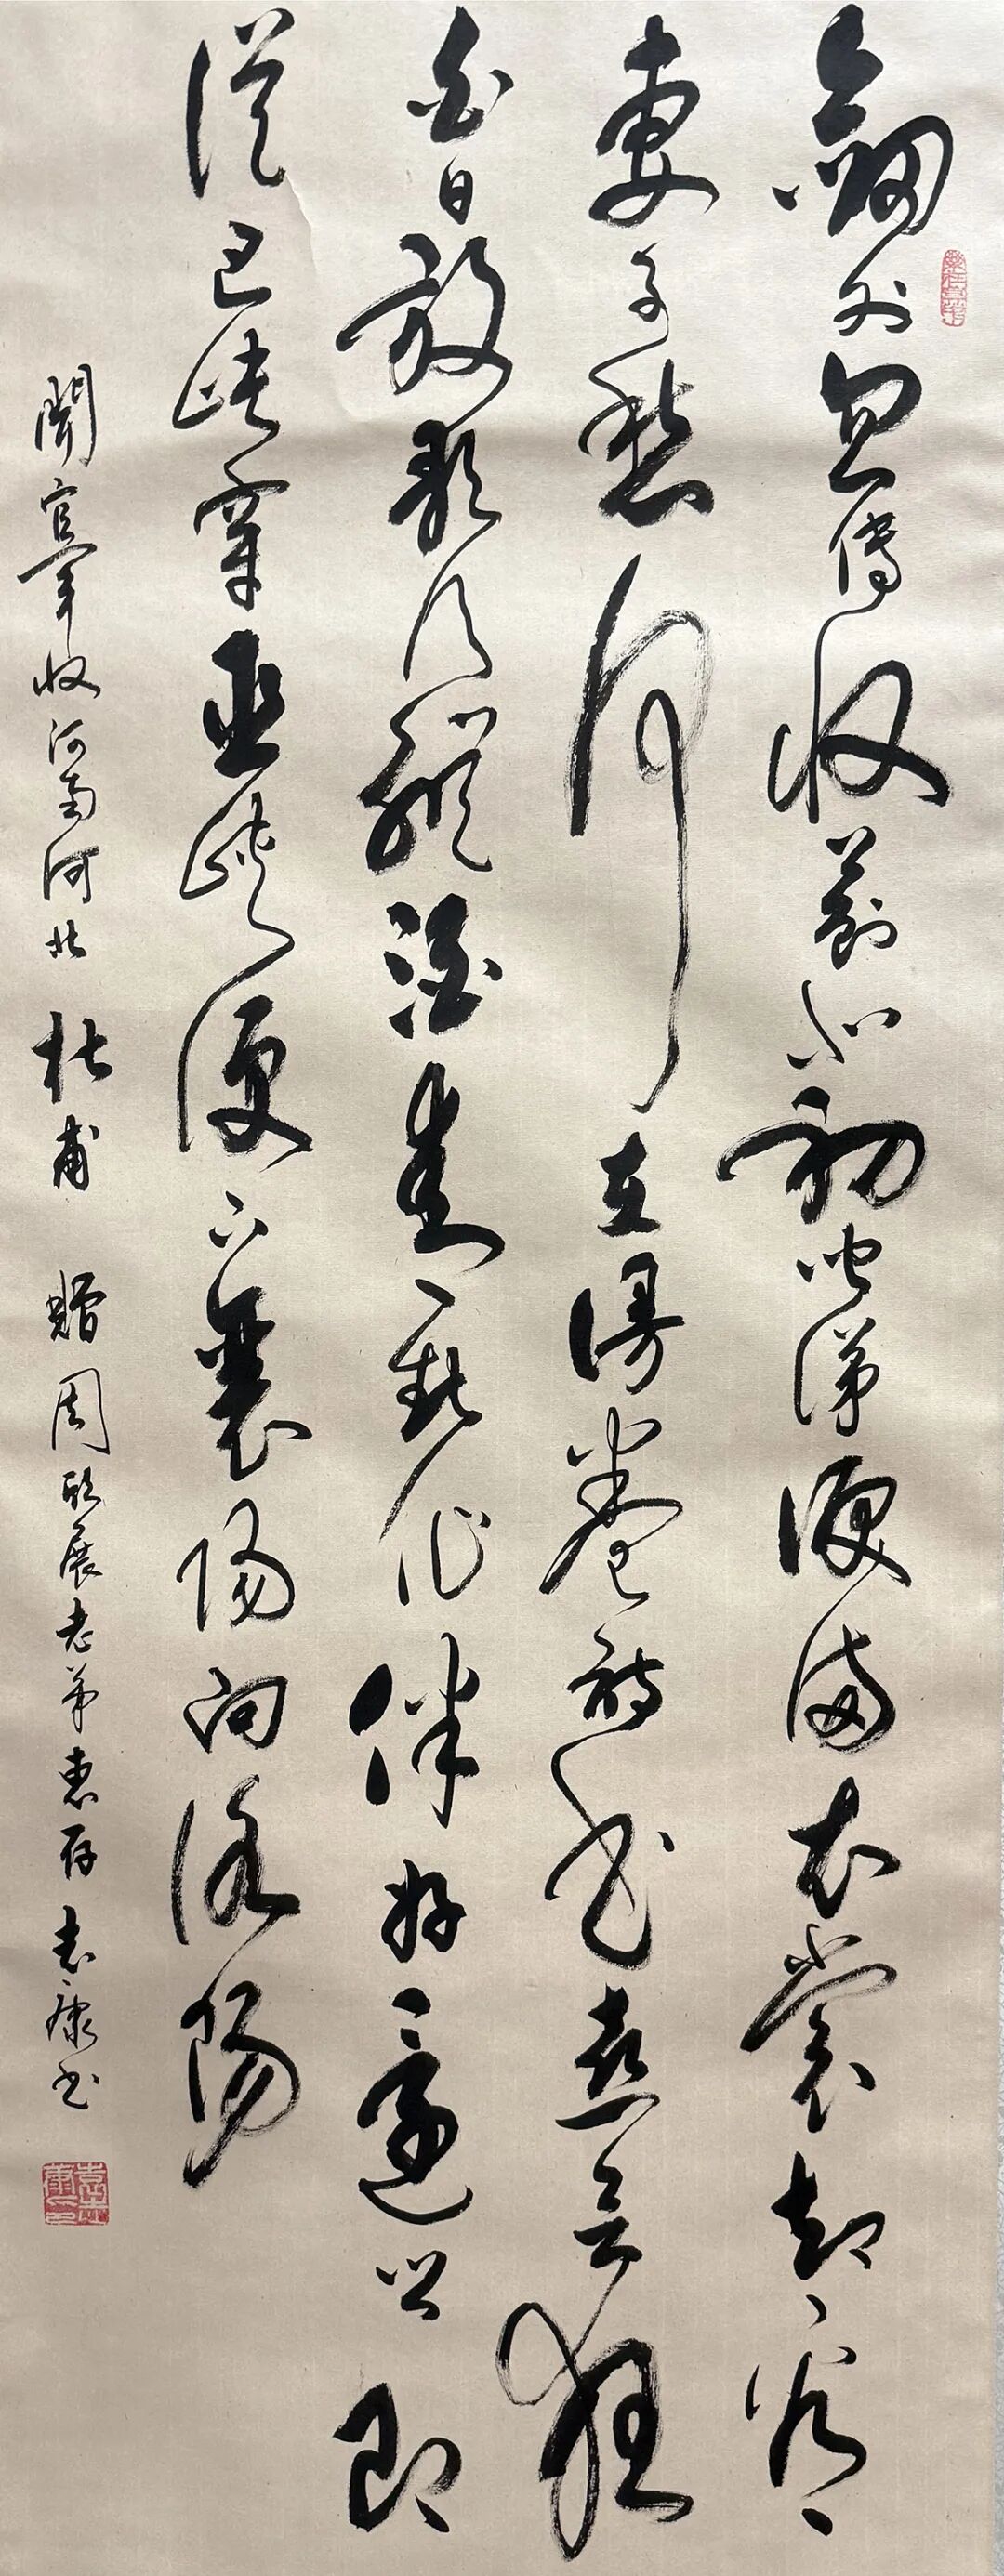 劒外忽傳收薊北初聞涕淚滿衣裳却看
妻子愁何在漫卷詩書喜欲狂
白日放歌須縱酒青春作伴好還鄉即
從巴峽穿巫峽便下襄陽向洛陽
聞官軍收河南河北 杜甫 贈周 展老弟惠存 志康书